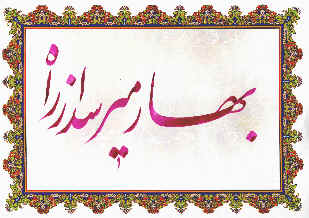 بهار میرسد از راه